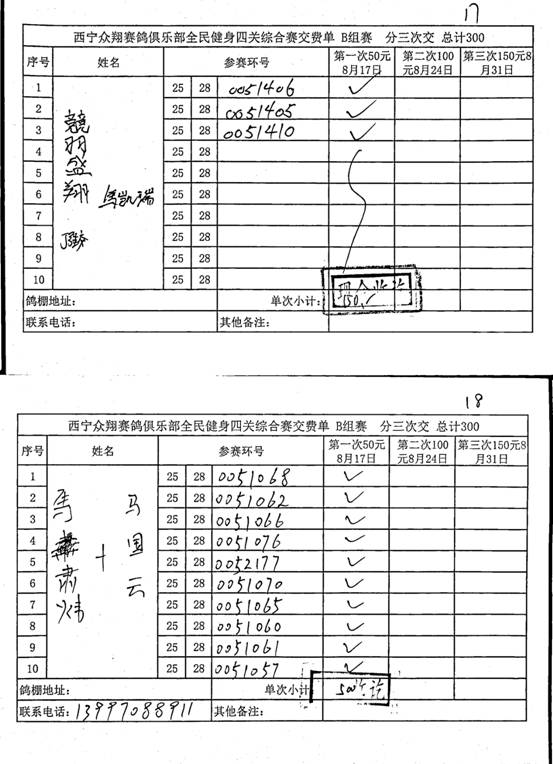 17
西宁众翔赛鸽俱乐部全民健身四关综合赛交费单 B组赛 分三次交 总计300
序号 姓名 参赛环号 第一次50元8月17日 第二次100元8月24日 第三次150元8月31日
1 25 28 0051406 ✓
2 25 28 0051405 ✓
3 25 28 0051410 ✓
4 25 28
5 25 28
6 25 28
7 25 28
8 25 28
9 25 28
10 25 28
競羽盛翔 马凯瑞
鸽棚地址: 单次小计: 现金收讫 150
联系电话: 其他备注:
18
西宁众翔赛鸽俱乐部全民健身四关综合赛交费单 B组赛 分三次交 总计300
序号 姓名 参赛环号 第一次50元8月17日 第二次100元8月24日 第三次150元8月31日
1 25 28 0051068 ✓
2 25 28 0051062 ✓
3 25 28 0051066 ✓
4 25 28 0051076 ✓
5 25 28 0052177 ✓
6 25 28 0051070 ✓
7 25 28 0051065 ✓
8 25 28 0051060 ✓
9 25 28 0051061 ✓
10 25 28 0051057 ✓
馬肃炜 + 马国云
鸽棚地址: 单次小计 500
联系电话: 13997088911 其他备注: